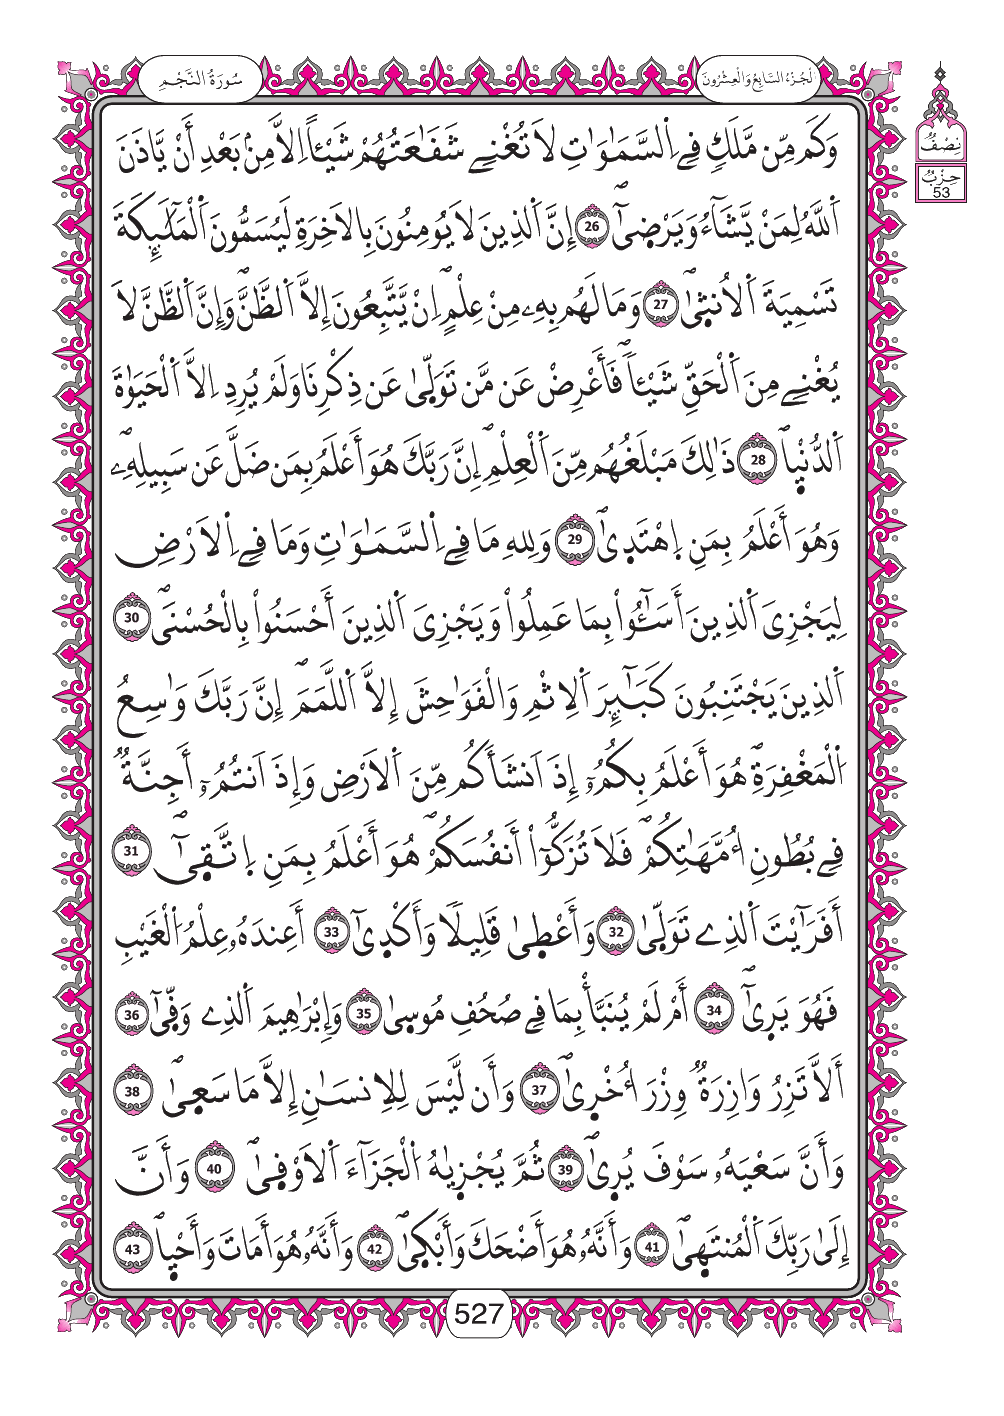 سُورَةُ النَّجْمِ
اَلْجُزْءُ السَّابِعُ وَالْعِشْرُونَ
نِصْفُ
حِزْبُ
53
وَكَم مِّن مَّلَكٍ فِے اِ۬لسَّمَٰوَٰتِ لَا تُغْنِے شَفَٰعَتُهُمْ شَيْـٔاً اِلَّا مِنۢ بَعْدِ أَنْ يَّاذَنَ
اَ۬للَّهُ لِمَنْ يَّشَآءُ وَيَرْض۪يٰٓۖ 26 إِنَّ اَ۬لذِينَ لَا يُومِنُونَ بِالَاخِرَةِ لَيُسَمُّونَ اَ۬لْمَلَٰٓئِكَةَ
تَسْمِيَةَ اَ۬لُانث۪يٰۖ 27 وَمَا لَهُم بِهِۦ مِنْ عِلْمٍۖ اِنْ يَّتَّبِعُونَ إِلَّا اَ۬لظَّنَّۖ وَإِنَّ اَ۬لظَّنَّ لَا
يُغْنِے مِنَ اَ۬لْحَقِّ شَيْـٔاًۖ فَأَعْرِضْ عَن مَّن تَوَلّ۪يٰ عَن ذِكْرِنَا وَلَمْ يُرِدِ اِلَّا اَ۬لْحَيَوٰةَ
اَ۬لدُّنْي۪اۖ 28 ذَٰلِكَ مَبْلَغُهُم مِّنَ اَ۬لْعِلْمِۖ إِنَّ رَبَّكَ هُوَ أَعْلَمُ بِمَن ضَلَّ عَن سَبِيلِهِۦۖ
وَهُوَ أَعْلَمُ بِمَنِ اِ۪هْتَد۪يٰۖ 29 وَلِلهِ مَا فِے اِ۬لسَّمَٰوَٰتِ وَمَا فِے اِ۬لَارْضِ
لِيَجْزِيَ اَ۬لذِينَ أَسَٰٓـُٔواْ بِمَا عَمِلُواْ وَيَجْزِيَ اَ۬لذِينَ أَحْسَنُواْ بِالْحُسْنَيۖ 30
اَ۬لذِينَ يَجْتَنِبُونَ كَبَٰٓئِرَ اَ۬لِاثْمِ وَالْفَوَٰحِشَ إِلَّا اَ۬للَّمَمَۖ إِنَّ رَبَّكَ وَٰسِعُ
اُ۬لْمَغْفِرَةِۖ هُوَ أَعْلَمُ بِكُمُۥٓ إِذَ اَنشَأَكُم مِّنَ اَ۬لَارْضِ وَإِذَ اَنتُمُۥٓ أَجِنَّةٞ
فِے بُطُونِ أُمَّهَٰتِكُمْۖ فَلَا تُزَكُّوٓاْ أَنفُسَكُمْۖ هُوَ أَعْلَمُ بِمَنِ اِ۪تَّق۪يٰٓۖ 31
أَفَرَٰٓيْتَ اَ۬لذِے تَوَلّ۪يٰ 32 وَأَعْط۪يٰ قَلِيلاٗ وَأَكْد۪يٰٓ 33 أَعِندَهُۥ عِلْمُ اُ۬لْغَيْبِ
فَهُوَ يَر۪يٰٓۖ 34 أَمْ لَمْ يُنَبَّأْ بِمَا فِے صُحُفِ مُوس۪يٰ 35 وَإِبْرَٰهِيمَ اَ۬لذِے وَفّ۪يٰٓ 36
أَلَّا تَزِرُ وَازِرَةٞ وِزْرَ أُخْر۪يٰۖ 37 وَأَن لَّيْسَ لِلِانسَٰنِ إِلَّا مَا سَع۪يٰۖ 38
وَأَنَّ سَعْيَهُۥ سَوْفَ يُر۪يٰۖ 39 ثُمَّ يُجْز۪يٰهُ اُ۬لْجَزَآءَ اَ۬لَاوْف۪يٰۖ 40 وَأَنَّ
إِلَيٰ رَبِّكَ اَ۬لْمُنتَه۪يٰۖ 41 وَأَنَّهُۥ هُوَ أَضْحَكَ وَأَبْك۪يٰۖ 42 وَأَنَّهُۥ هُوَ أَمَاتَ وَأَحْي۪اۖ 43
527